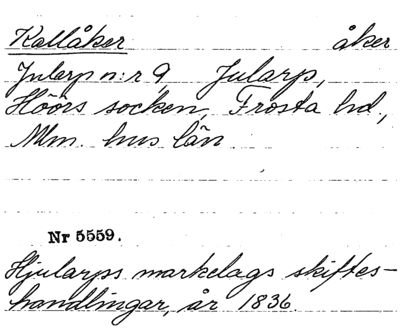 Kallåker åker
Jularp n:r 9, Jularp,
Höörs socken, Frosta hd,
Mlm. hus län
Nr 5559.
Hjularps markelags skiftes-
handlingar, år 1836.